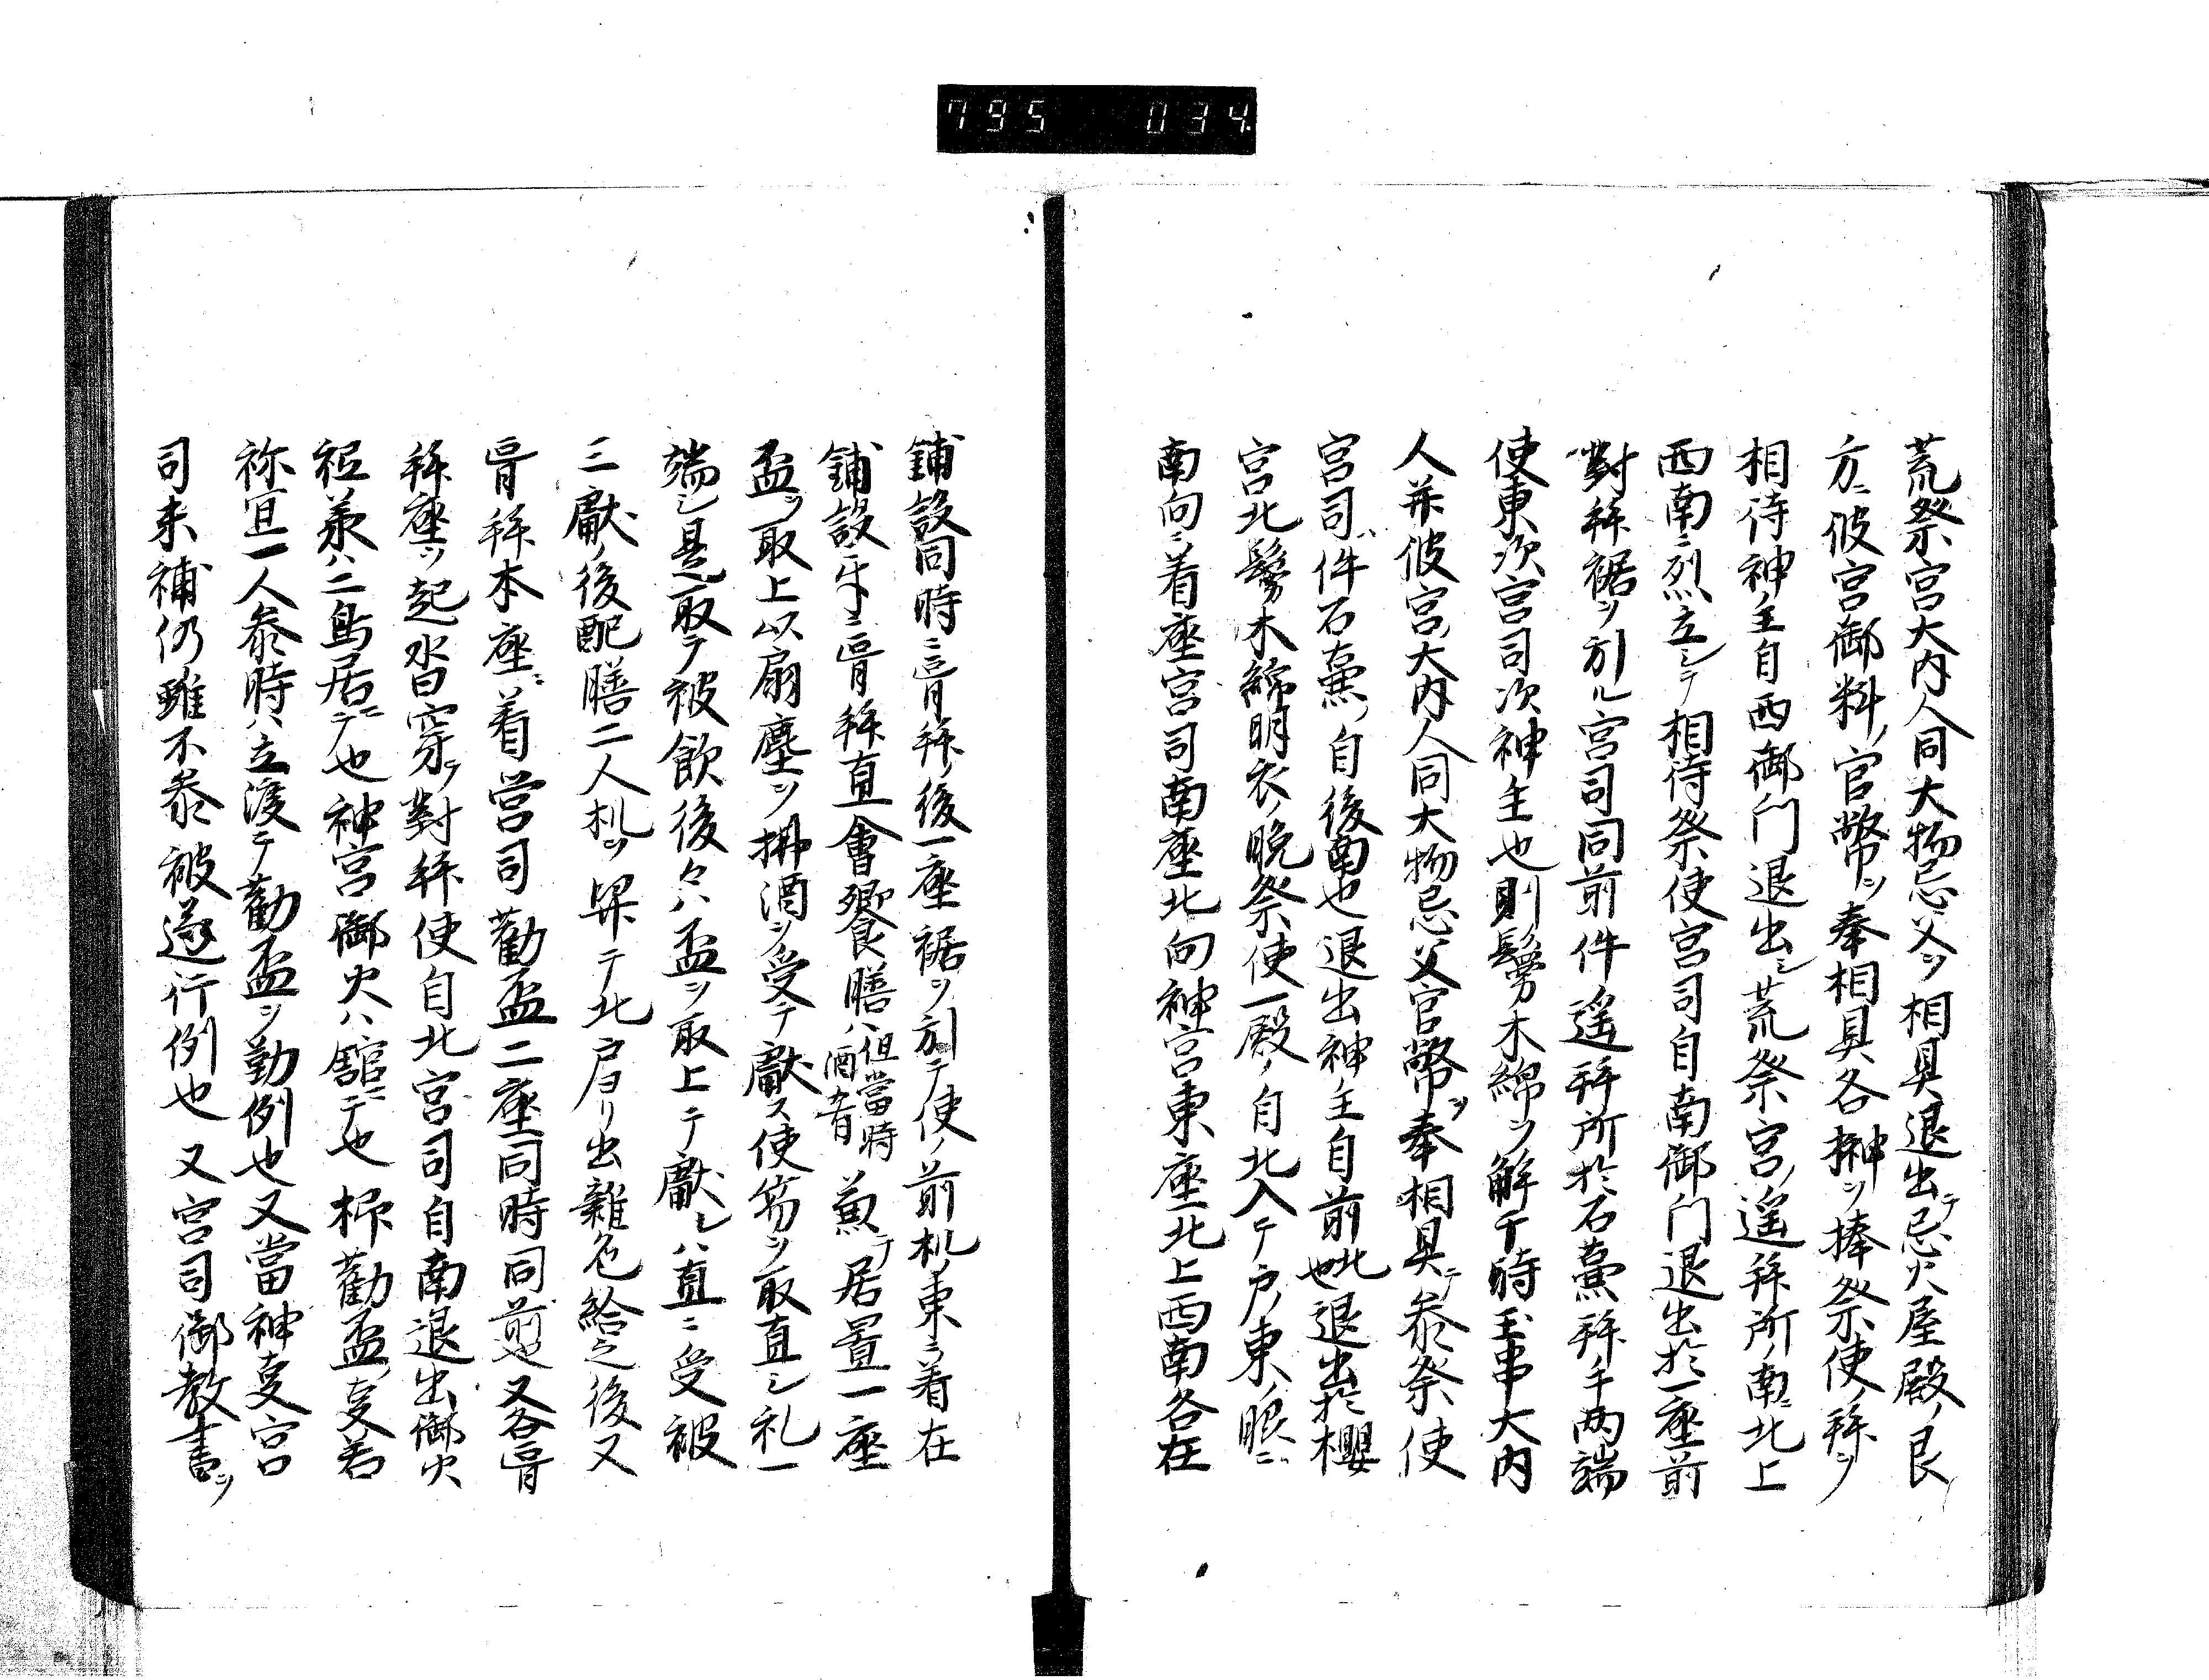 795 034
荒祭宮大内人同大物忌父ヲ相具退出テ忌火屋殿ノ艮
方ニ彼宮御料ノ官幣ヲ奉相具各榊ヲ捧祭使ノ拜ヲ
相待神主自西御門退出シ荒祭宮ノ遥拜所ノ南ニ北上
西南ニ烈立シテ相待祭使宮司自南御門退出於一座前
對拜裾ヲ引ル宮司同前件遥拜所於石藁拜手両端
使東次宮司次神主也則鬘木綿ヲ解于時玉串大内
人并彼宮ノ大内人同大物忌父官幣ヲ奉相具テ参祭使
宮司件石藁自後南也退出神主自前北也退出於櫻
宮北鬘木綿明衣ノ晩祭使一殿ノ自北入テ戸ノ東ノ脹ニ
南向ニ着座宮司南座北向神宮東座北上西南各在
鋪設同時ニ揖拜ノ後一座裾ヲ引テ使ノ前机ノ東ニ着在
鋪設半ニ揖拜直會饗膳ハ但當時酒肴兼テ居置一座
盃ヲ取上以扇塵ヲ拂酒ヲ受テ獻ス使笏ヲ取直シ礼一
端シ是取テ被飲後々ハ盃ヲ取上テ獻レハ直ニ受被
三獻ノ後配膳二人机ヲ舁テ北戸ヨリ出雑色給之後又
揖拜本座ニ着宮司勸盃二座同時同前也又各揖
拜座ヲ起沓穿ヲ對拜使自北宮司自南退出御火
祗兼ハ二鳥居ニテ也神宮御火ハ舘ニテ也抑勸盃ノ㕝若
祢冝一人参時ハ立渡テ勸盃ヲ勤例也又當神㕝宮
司未補仍雖不参被遂行例也又宮司御教書ヲ